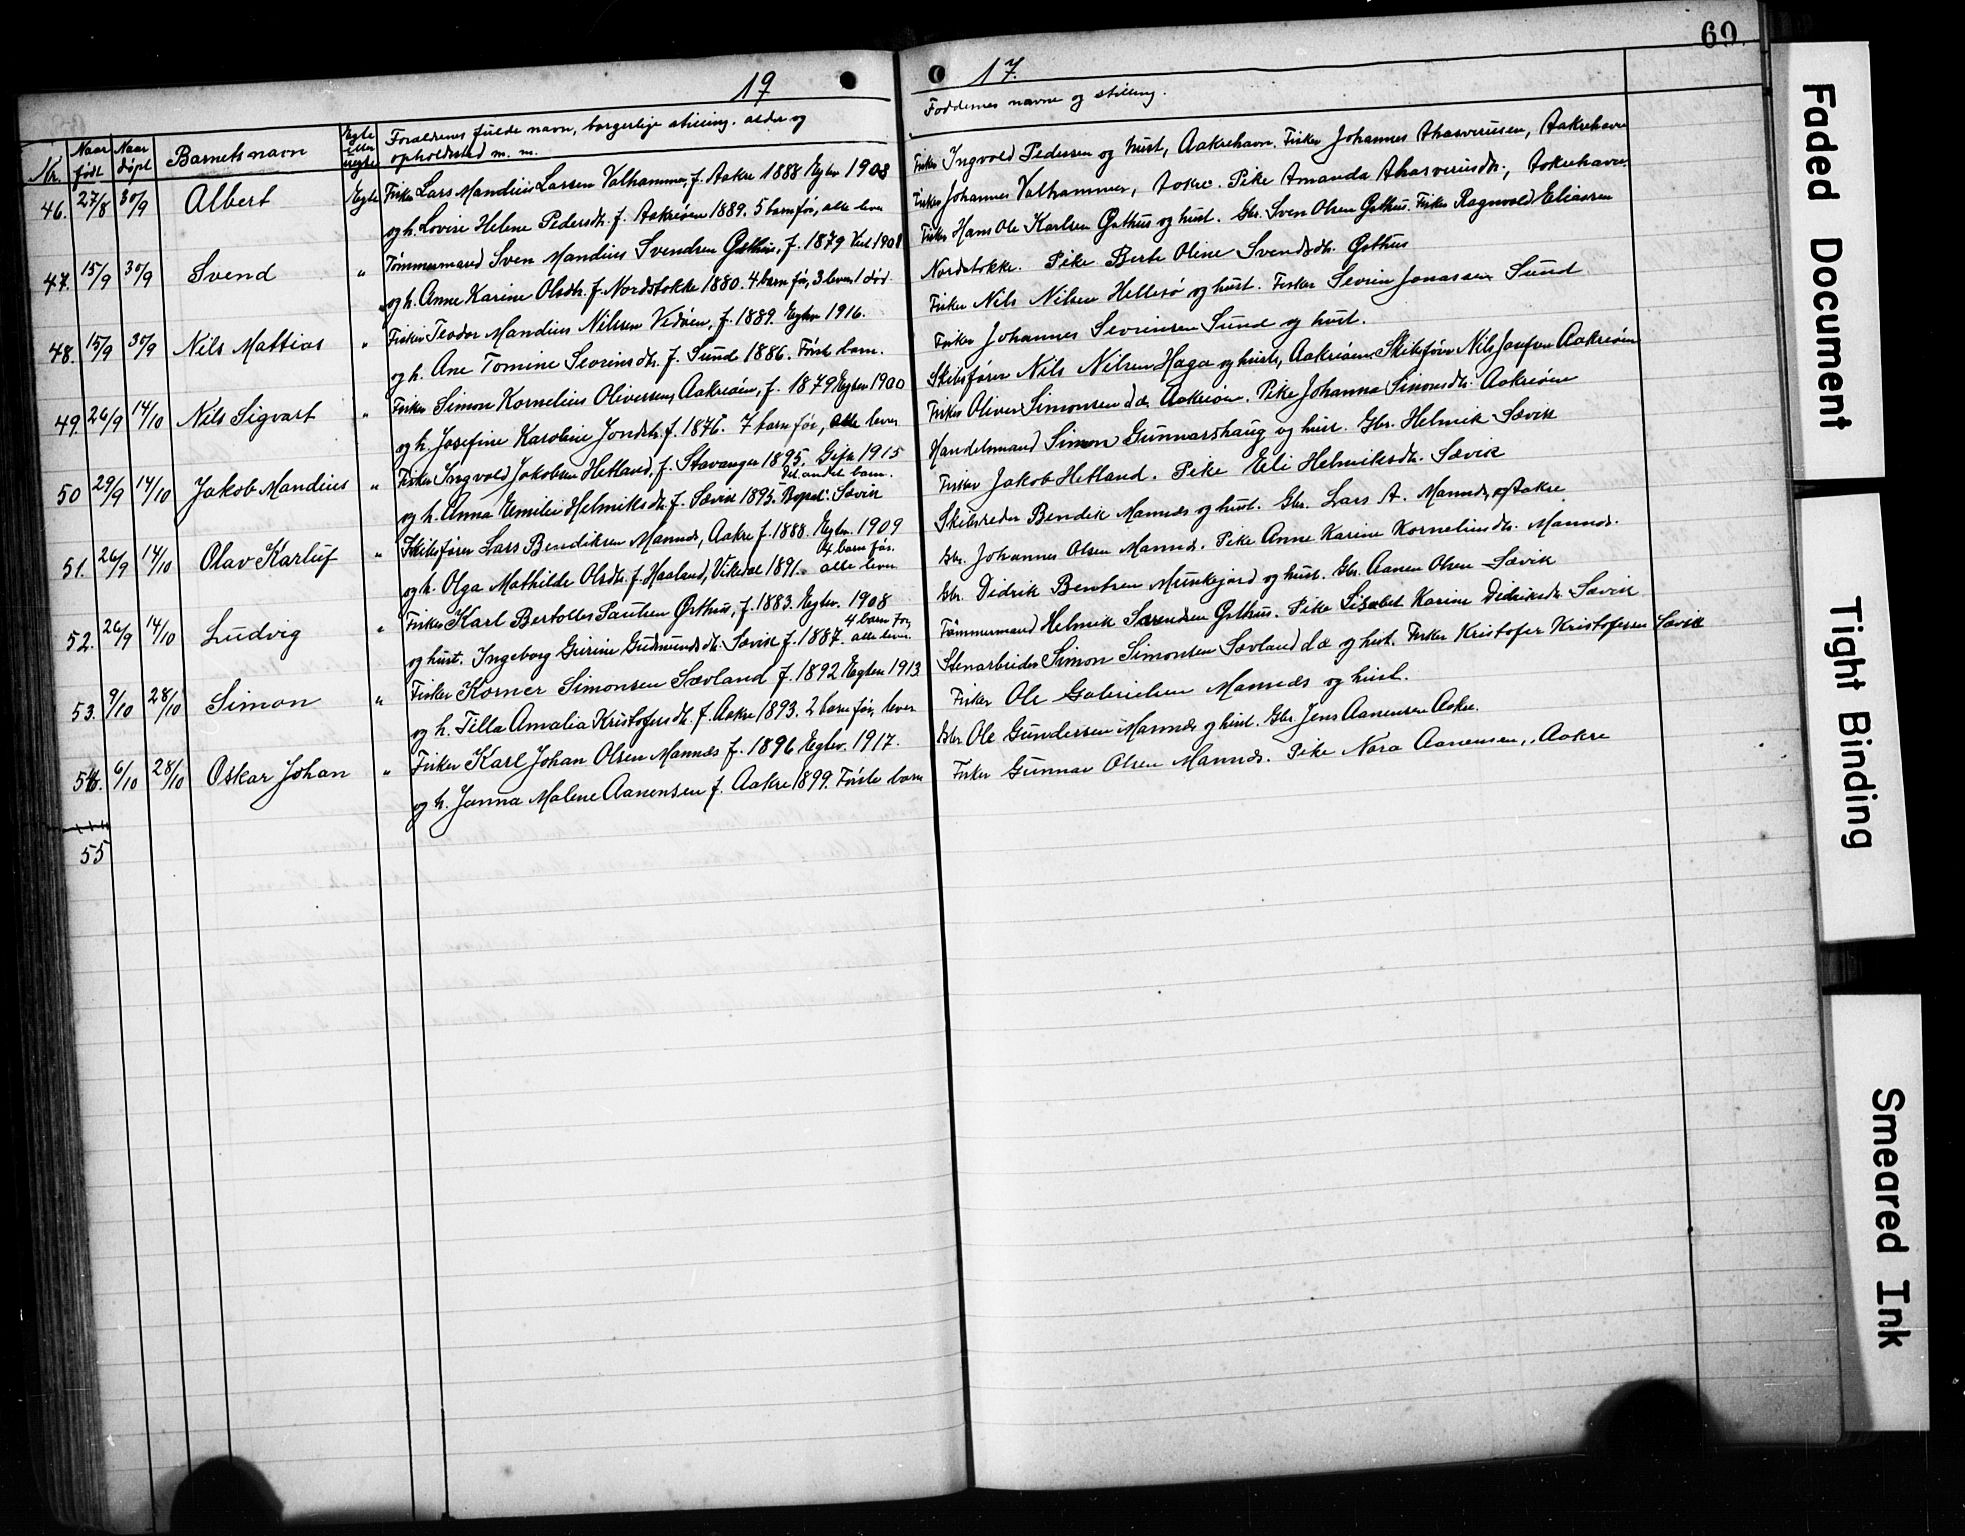 60.
19 17.
Nr. Naar født Naar døpt Barnets navn Egte Eller uegte Forældrenes fulde navn, borgerlige stilling, alder og opholdssted m. m. Faddernes navne og stilling.
46. 27/8 30/9 Albert Egte Fisker Lars Mandius Larsen Valhammer, f. Aakre 1888 Egtev 1908
og h. Lovise Helene Pedersdtr. f. Aakreøen 1889. 5 barn før, alle lever
Fisker Ingvold Pedersen og hust, Aakrehavn. Fisker Johannes Ahasverusen, Aakrehavn
Fisker Johannes Valhammer, Aakre. Pike Amanda Ahasverusdtr., Aakrehavn.
47. 15/9 30/9 Svend " Tømmermand Sven Mandius Svendsen Østhus, f. 1879 Viet 1908
og h. Anne Karine Olsdtr. f. Nordstokke 1880. 4 barn før, 3 lever 1 død
Fisker Hans Ole Karlsen Østhus og hust. Gbr. Sven Olsen Østhus. Fisker Ragnvald Eliassen
Nordstokke. Pike Berte Oline Svendsdtr. Østhus
48. 15/9 30/9 Nils Mattias " Fisker Teodor Mandius Nilssen Vedøen, f. 1889. Egtev 1916.
og h. Ane Tomine Sevrinsdtr. f. Sund 1886. Første barn.
Fisker Nils Nilsen Hellesø og hust. Fisker Sevrin Jonassen Sund
Fisker Johannes Sevrinsen Sund og hust.
49. 26/9 14/10 Nils Sigvart " Fisker Simon Kornelius Oliversen, Aakreøen, f. 1879 Egtev 1900
og h. Josefine Karoline Jonsdtr. f. 1876. 7 barn før, alle lever
Skibsfører Nils Nilsen Haga og hustr, Aakreøen Skibsfører Nils Josefsen Aakreøen
Fisker Oliver Simonsen d.æ. Aakreøen. Pike Johanna Simonsdtr. Aakreøen
50 29/9 14/10 Jakob Mandius " Fisker Ingvold Jakobsen Hetland, f. Stavanger 1895. Gift 1915
Det andet barn.
og h. Anna Emilie Helmiksdtr. f. Sævik 1895. Bopæl: Sævik
Handelsmand Simon Gunnarshaug og hust. Gbr. Helmik Sævik
Fisker Jakob Hetland. Pike Eli Helmiksdtr. Sævik
51. 26/9 14/10 Olav Karluf " Skibsfører Lars Bendiksen Mannes, Aakre f. 1888. Egtev. 1909
4 barn før.
og h. Olga Mathilde Olsdtr. f. Haaland, Vikedal 1891. alle lever
Skibsreder Bendik Mannes og hust. Gbr. Lars A. Mannes, Aakre
Gbr. Johannes Olsen Mannes. Pike Anne Karine Korneliusdtr. Mannes.
52. 26/9 14/10 Ludvig " Fisker Karl Bertolles Østhus, f. 1883. Egtev. 1908
4 barn før,
og hust. Ingeborg Gurine Gudmundsdtr. Sævik f. 1887. alle lever.
Gbr. Didrik Bentsen Munkejord og hust. Gbr. Aanen Olsen Sævik
Tømmermand Helmik Sørensen Østhus. Pike Elisabet Karine Didriksdtr. Sævik
53. 9/10 28/10 Simon " Fisker Korner Simonsen Sævland f. 1892 Egtev 1913
og h. Tilla Amalia Kristofersdtr. f. Aakre 1893. 2 barn før, lever
Stenarbeider Simon Simonsen Sævland d.æ og hust. Fisker Kristofer Kristofersen Sævik
Fisker Ole Gabrielsen Mannes og hust.
54. 6/10 28/10 Oskar Johan " Fisker Karl Johan Olsen Mannæs f. 1896 Egtev. 1917.
og h. Janna Malene Aanensen f. Aakre 1899. Første barn
Gbr. Ole Gundersen Mannes og hust. Gbr. Jens Aanensen Aakre.
Fisker Gunnar Olsen Mannes. Pike Nora Aanensen, Aakre
55
Faded Document
Tight Binding
Smeared Ink